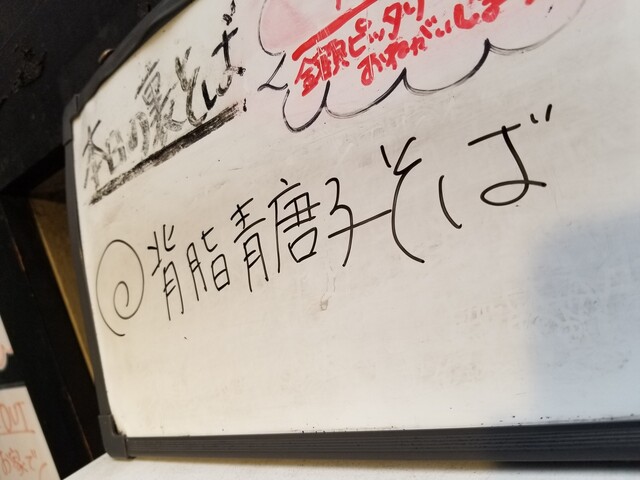 本日の裏そば
金額ピッタリ
おねがいしま
背脂青唐子そば
OUT
お家で